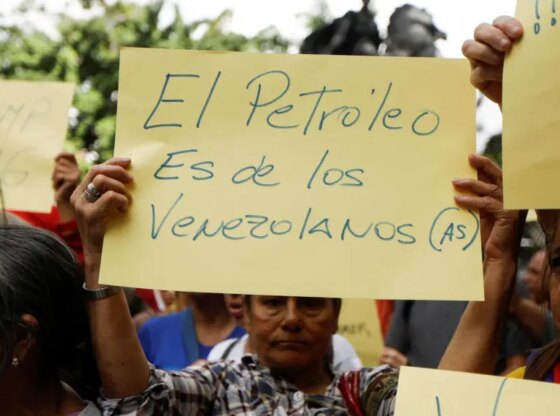 El Petróleo
Es de los
Venezolanos (as)
!!